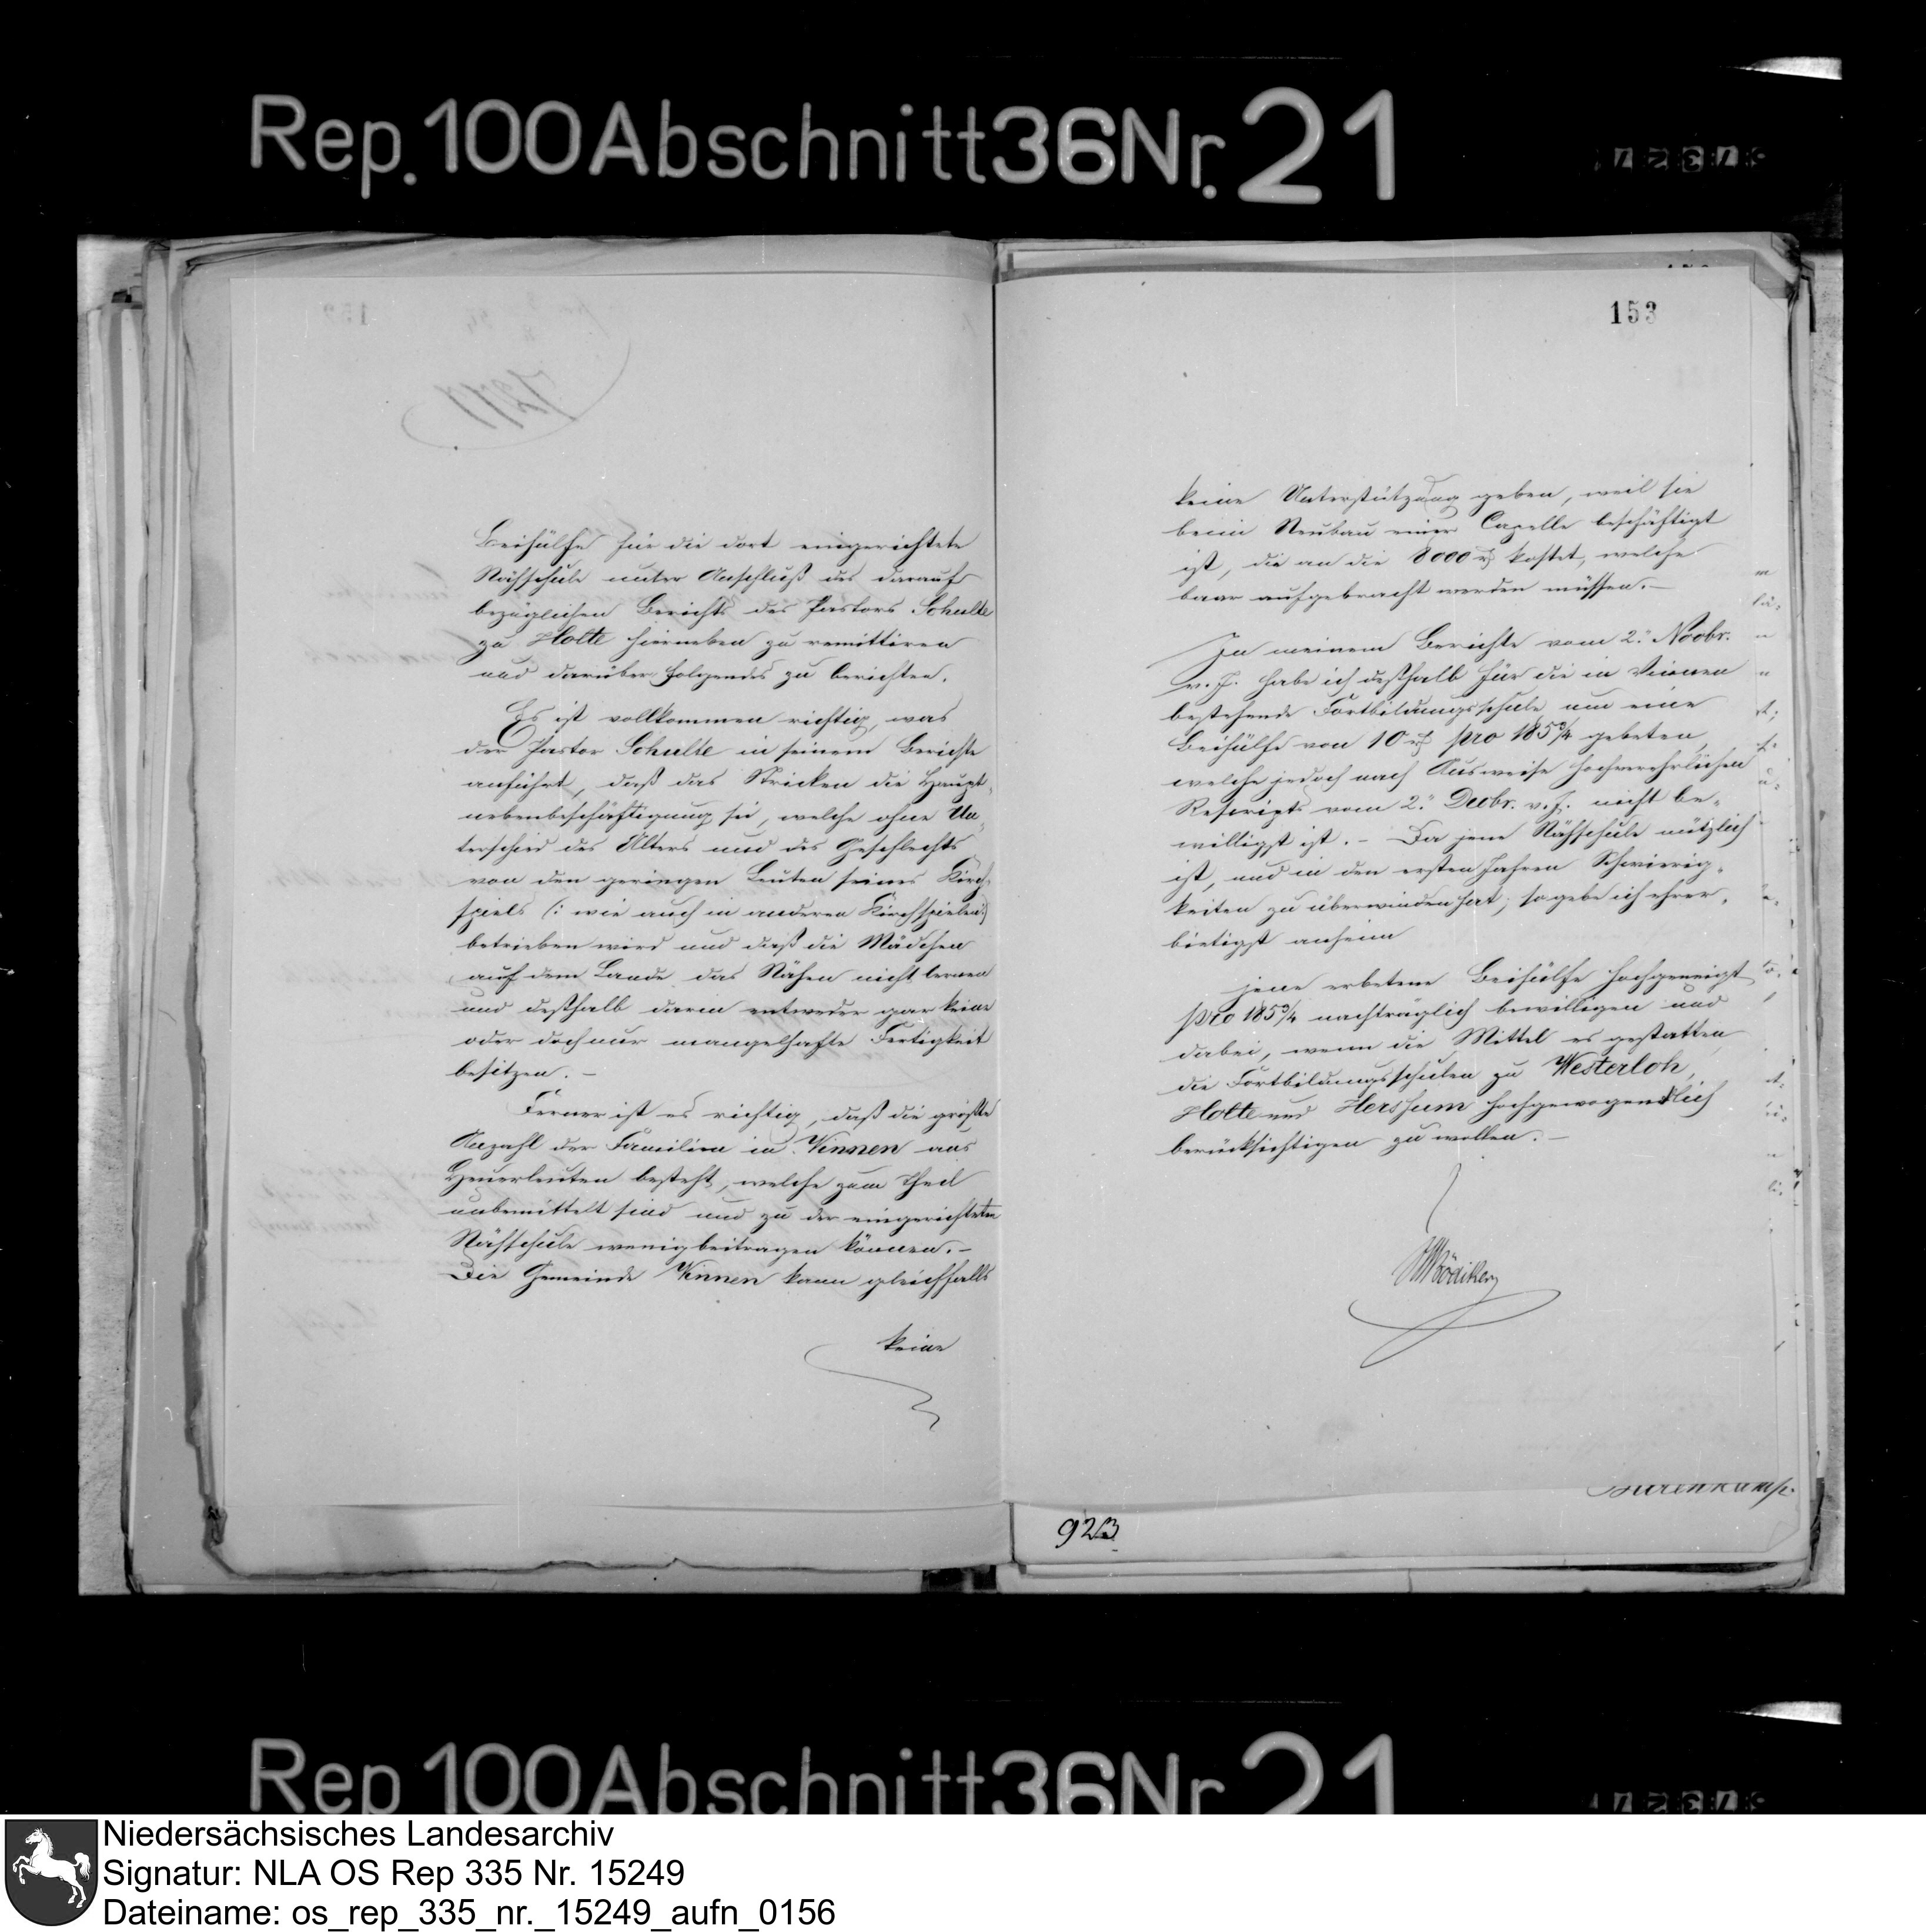 Rep. 100 Abschnitt 36 Nr. 21
Beihülfe für die dort eingerichtete
Nähschule unter Anschluß des darauf
bezüglichen Berichts des Pastors Schulte
zu Holte hierneben zu remittiren
und darüber folgendes zu berichten.
Es ist vollkommen richtig, was
der Pastor Schulte in seinem Berichte
anführt, daß das Stricken die Haupt-
nebenbeschäftigung sei, welche ohne Un-
terschied des Alters und des Geschlechts
von den geringen Leuten seines Kirch-
spiels (: wie auch in anderen Kirchspielen :)
betrieben wird und daß die Mädchen
auf dem Lande das Nähen nicht lernen
und deßhalb darin entweder gar keine
oder doch nur mangelhafte Fertigkeit
besitzen. –
Ferner ist es richtig, daß die größte
Anzahl der Familien in Vinnen aus
Heuerleuten besteht, welche zum Theil
unbemittelt sind und zu der eingerichteten
Nähschule wenig beitragen können. –
Die Gemeinde Vinnen kann gleichfalls
keine
153
keine Unterstützung geben, weil sie
beim Neubau einer Capelle beschäftigt
ist, die an die 8000 rℓ kostet, welche
baar aufgebracht werden müssen. –
In meinem Berichte vom 2. Novbr.
v. J. habe ich deßhalb für die in Vinnen
bestehende Fortbildungsschule um eine
Beihülfe von 10 rℓ pro 185¾ gebeten,
welche jedoch nach Ausweise hochverehrlichen
Rescripts vom 2. Decbr. v. J. nicht be-
willigt ist. – Da jene Nähschule nützlich
ist, und in den ersten Jahren Schwierig-
keiten zu überwinden hat; so gebe ich ehrer-
bietigst anheim
jene erbetene Beihülfe hochgeneigt
pro 185¾ nachträglich bewilligen und
dabei, wenn die Mittel es gestatten,
die Fortbildungsschulen zu Westerloh,
Holte und Herssum hochgewogendlich
berücksichtigen zu wollen. –
923
Rep 100 Abschnitt 36 Nr 21
Niedersächsisches Landesarchiv
Signatur: NLA OS Rep 335 Nr. 15249
Dateiname: os_rep_335_nr._15249_aufn_0156